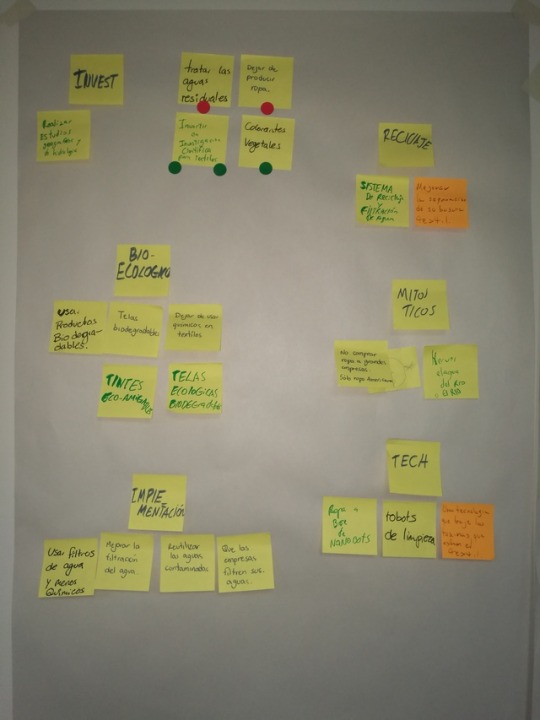 INVEST
Realizar
estudios
y
tratar las
aguas
residuales
Dejar de
producir
ropa.
Invertir
en
Investigación
Científica
para textiles
Colorantes
Vegetales
RECICLAJE
SISTEMA
DE RECICLAJE
Y
DE AGUA
Mejorar
la
de la basura
BIO-
ECOLOGICO
Usar
Productos
Biodegra-
dables.
Telas
biodegradables
Dejar de usar
quimicos en
textiles
TINTES
ECO-AMIGABLES
TELAS
ECOLOGICAS
BIODEGRADABLES
MITOI
TICOS
No comprar
ropa a grandes
empresas
Solo ropa
el agua
del Rio
TECH
Ropa a
Base
de
NANOBOTS
robots
de limpieza
Una tecnologia
que baje los
IMPLE-
MENTACIÓN
Usar filtros
de agua
y menos
Químicos
Mejorar la
filtración
del agua.
Reutilizar
las aguas
contaminadas
Que las
empresas
filtren sus
aguas.